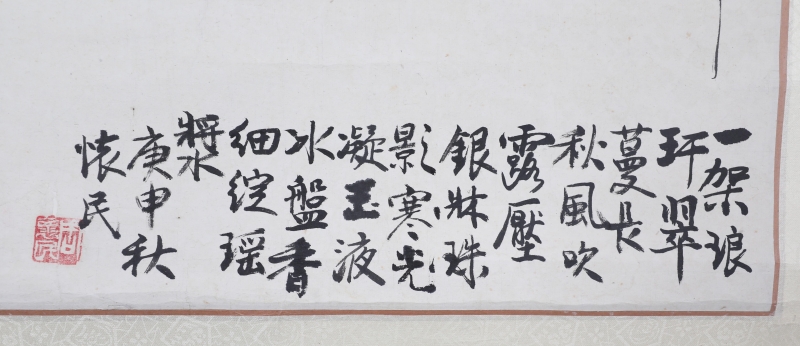 一架琅
玕翠
蔓長
秋風吹
露壓
銀牀珠
影寒光
凝玉液
冰盤香
細綻瑶
漿
庚申秋
懷民